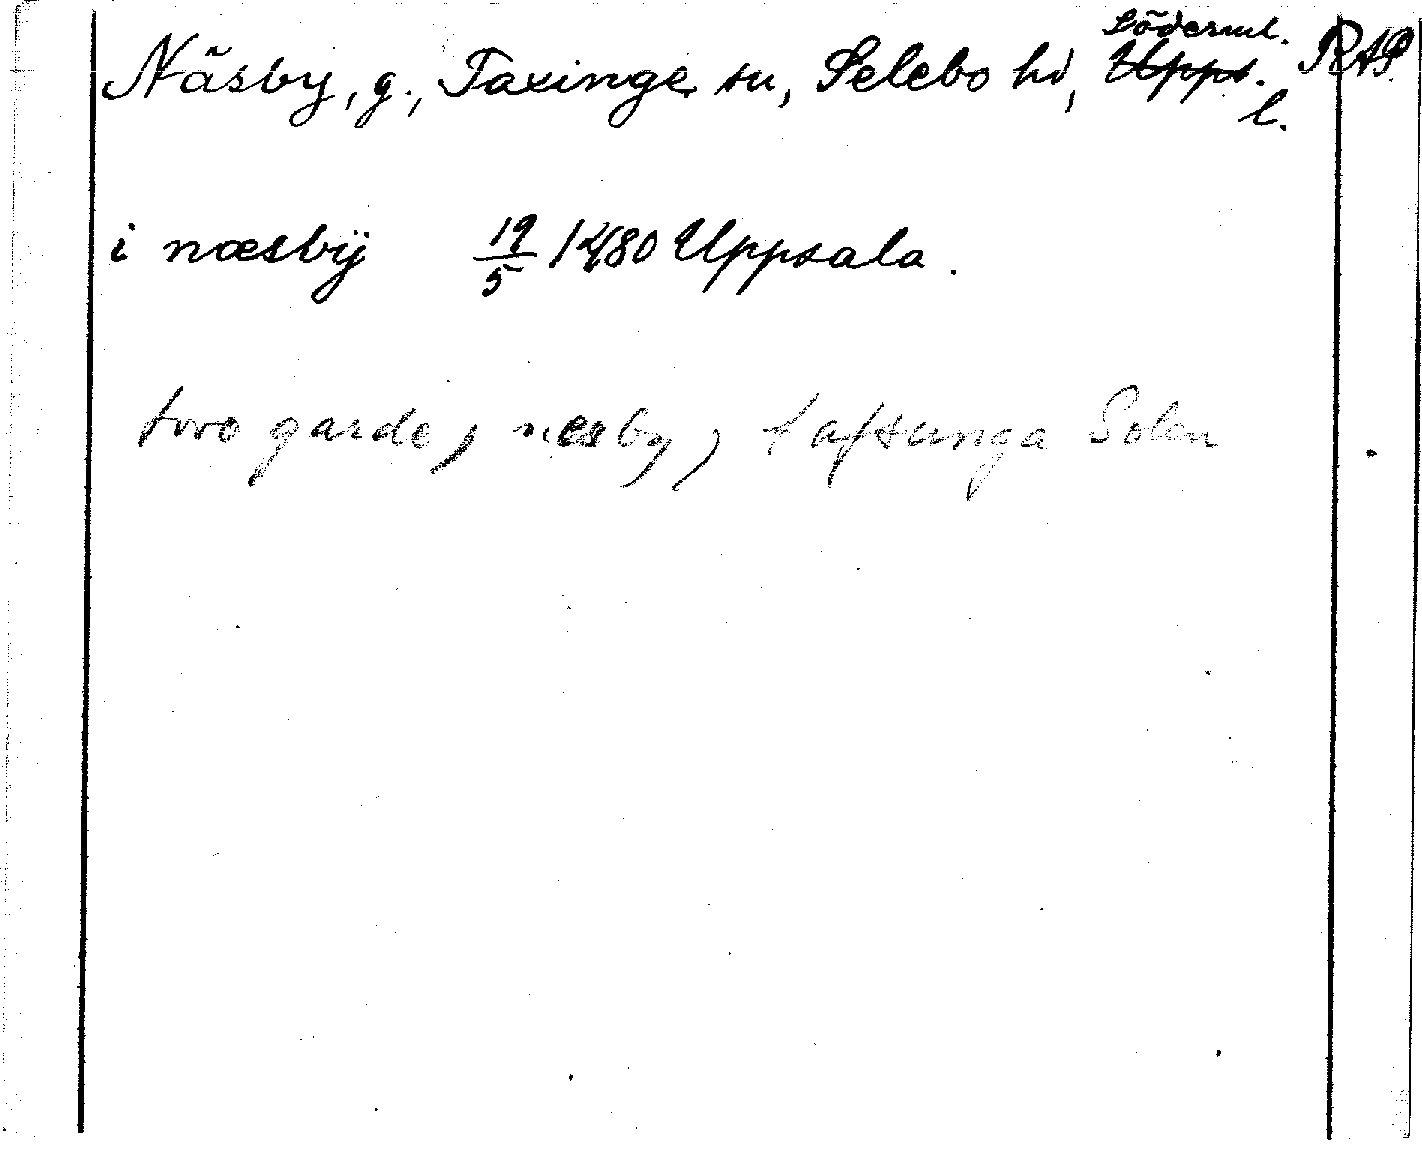 Näsby, g., Taxinge sn, Selebo hd, Söderml. Upps. l. RAP.
i næsbÿ 19/5 1480 Uppsala.
two garde, i næsby, i tafsunga Sokn